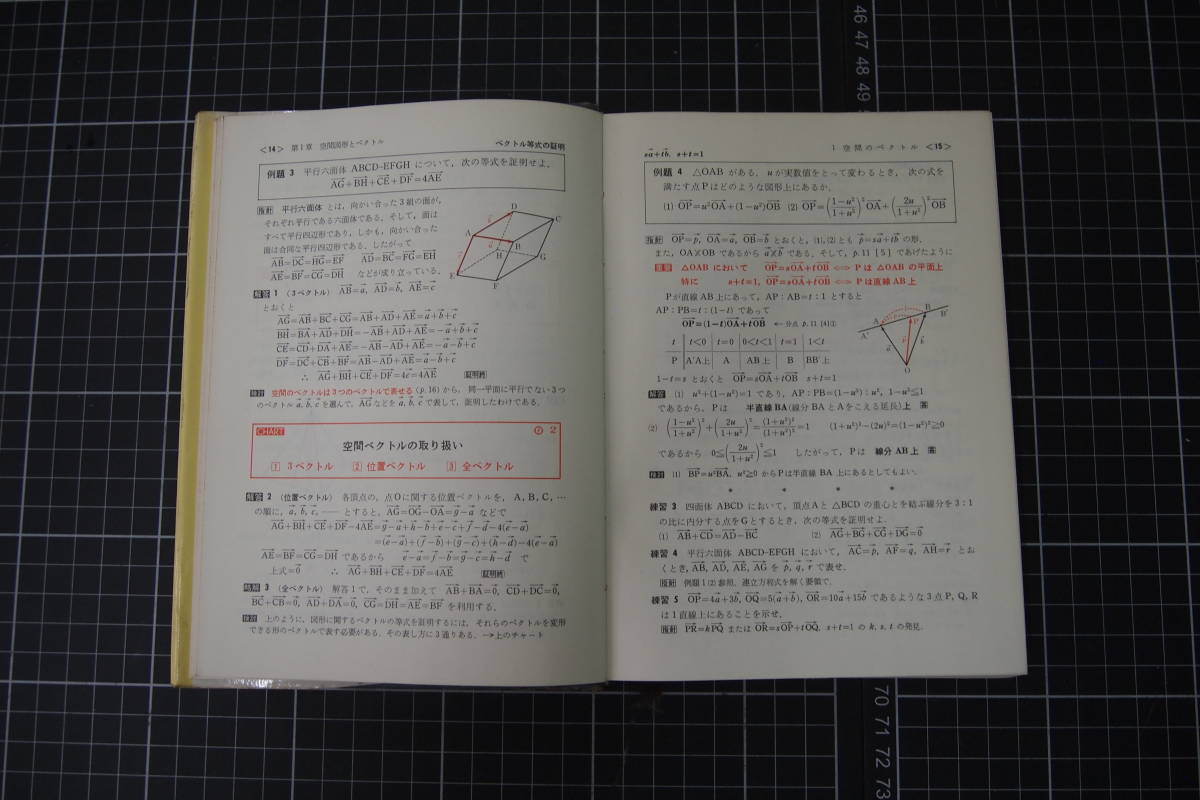 <14> 第1章 空間図形とベクトル ベクトル等式の証明
例題 3 平行六面体 ABCD-EFGH について,次の等式を証明せよ.
AG+BH+CE+DF=4AE
指針 平行六面体 とは,向かい合った3組の面が,
それぞれ平行である六面体である.そして,面は
すべて平行四辺形であり,しかも,向かい合った
面は合同な平行四辺形である.したがって
AB=DC=HG=EF AD=BC=FG=EH
AE=BF=CG=DH などが成り立っている.
解答 1 (3ベクトル) AB=a, AD=b, AE=c
とおくと
AG=AB+BC+CG=AB+AD+AE=a+b+c
BH=BA+AD+DH=-AB+AD+AE=-a+b+c
CE=CD+DA+AE=-AB-AD+AE=-a-b+c
DF=DC+CB+BF=AB-AD+AE=a-b+c
∴ AG+BH+CE+DF=4c=4AE 証明終
検討 空間のベクトルは3つのベクトルで表せる (p.16) から,同一平面に平行でない3つ
のベクトル a, b, c を選んで,AG などを a, b, c で表して,証明したわけである.
CHART 2
空間ベクトルの取り扱い
1 3ベクトル 2 位置ベクトル 3 全ベクトル
解答 2 (位置ベクトル) 各頂点の,点Oに関する位置ベクトルを,A, B, C, …
の順に,a, b, c, —— とすると,AG=OG-OA=g-a などで
AG+BH+CE+DF-4AE=g-a+h-b+e-c+f-d-4(e-a)
=(e-a)+(f-b)+(g-c)+(h-d)-4(e-a)
AE=BF=CG=DH であるから e-a=f-b=g-c=h-d で
上式=0 ∴ AG+BH+CE+DF=4AE 証明終
略解 3 (全ベクトル) 解答1で,そのまま加えて AB+BA=0, CD+DC=0,
BC+CB=0, AD+DA=0, CG=DH=AE=BF を利用する.
検討 上のように,図形に関するベクトルの等式を証明するには,それらのベクトルを変形
できる形のベクトルで表す必要がある.その表し方に3通りある.→上のチャート
D
C
A
B
H
G
E
F
sa+tb, s+t=1 1 空間のベクトル <15>
例題 4 △OAB がある.u が実数値をとって変わるとき,次の式を
満たす点Pはどのような図形上にあるか.
(1) OP=u²OA+(1-u²)OB (2) OP=((1-u²)/(1+u²))²OA+(2u/(1+u²))²OB
指針 OP=p, OA=a, OB=b とおくと,(1),(2)とも p=sa+tb の形.
また,OA∦OB であるから a∦b である.そして,p.11 [5] であげたように
重要 △OAB において OP=sOA+tOB ⟺ P は △OAB の平面上
特に s+t=1, OP=sOA+tOB ⟺ P は直線 AB 上
Pが直線 AB 上にあって,AP:AB=t:1 とすると
AP:PB=t:(1-t) であって
OP=(1-t)OA+tOB ←分点 p.11 [4]①
t t<0 t=0 0<t<1 t=1 1<t
P A'A上 A AB上 B BB'上
1-t=s とおくと OP=sOA+tOB s+t=1
A' A P B B'
a p b
O
解答 (1) u²+(1-u²)=1 であり,AP:PB=(1-u²):u², 1-u²≦1
であるから,P は 半直線 BA (線分 BA と A をこえる延長) 上 答
(2) ((1-u²)/(1+u²))²+(2u/(1+u²))²=(1+u²)²/(1+u²)²=1 (1+u²)²-(2u)²=(1-u²)²≧0
であるから 0≦(2u/(1+u²))²≦1 したがって,P は 線分 AB 上 答
検討 (1) BP=u²BA, u²≧0 から P は半直線 BA 上にあるとしてもよい.
* * * *
練習 3 四面体 ABCD において,頂点Aと △BCD の重心とを結ぶ線分を 3:1
の比に内分する点をGとするとき,次の等式を証明せよ.
(1) AB+CD=AD-BC (2) AG+BG+CG+DG=0
練習 4 平行六面体 ABCD-EFGH において,AC=p, AF=q, AH=r とお
くとき,AB, AD, AE, AG を p, q, r で表せ.
指針 例題 1 (2) 参照.連立方程式を解く要領で.
練習 5 OP=4a+3b, OQ=5(a+b), OR=10a+15b であるような3点 P, Q, R
は1直線上にあることを示せ.
指針 PR=kPQ または OR=sOP+tOQ, s+t=1 の k, s, t の発見.
46 47 48 49
70 71 72 73